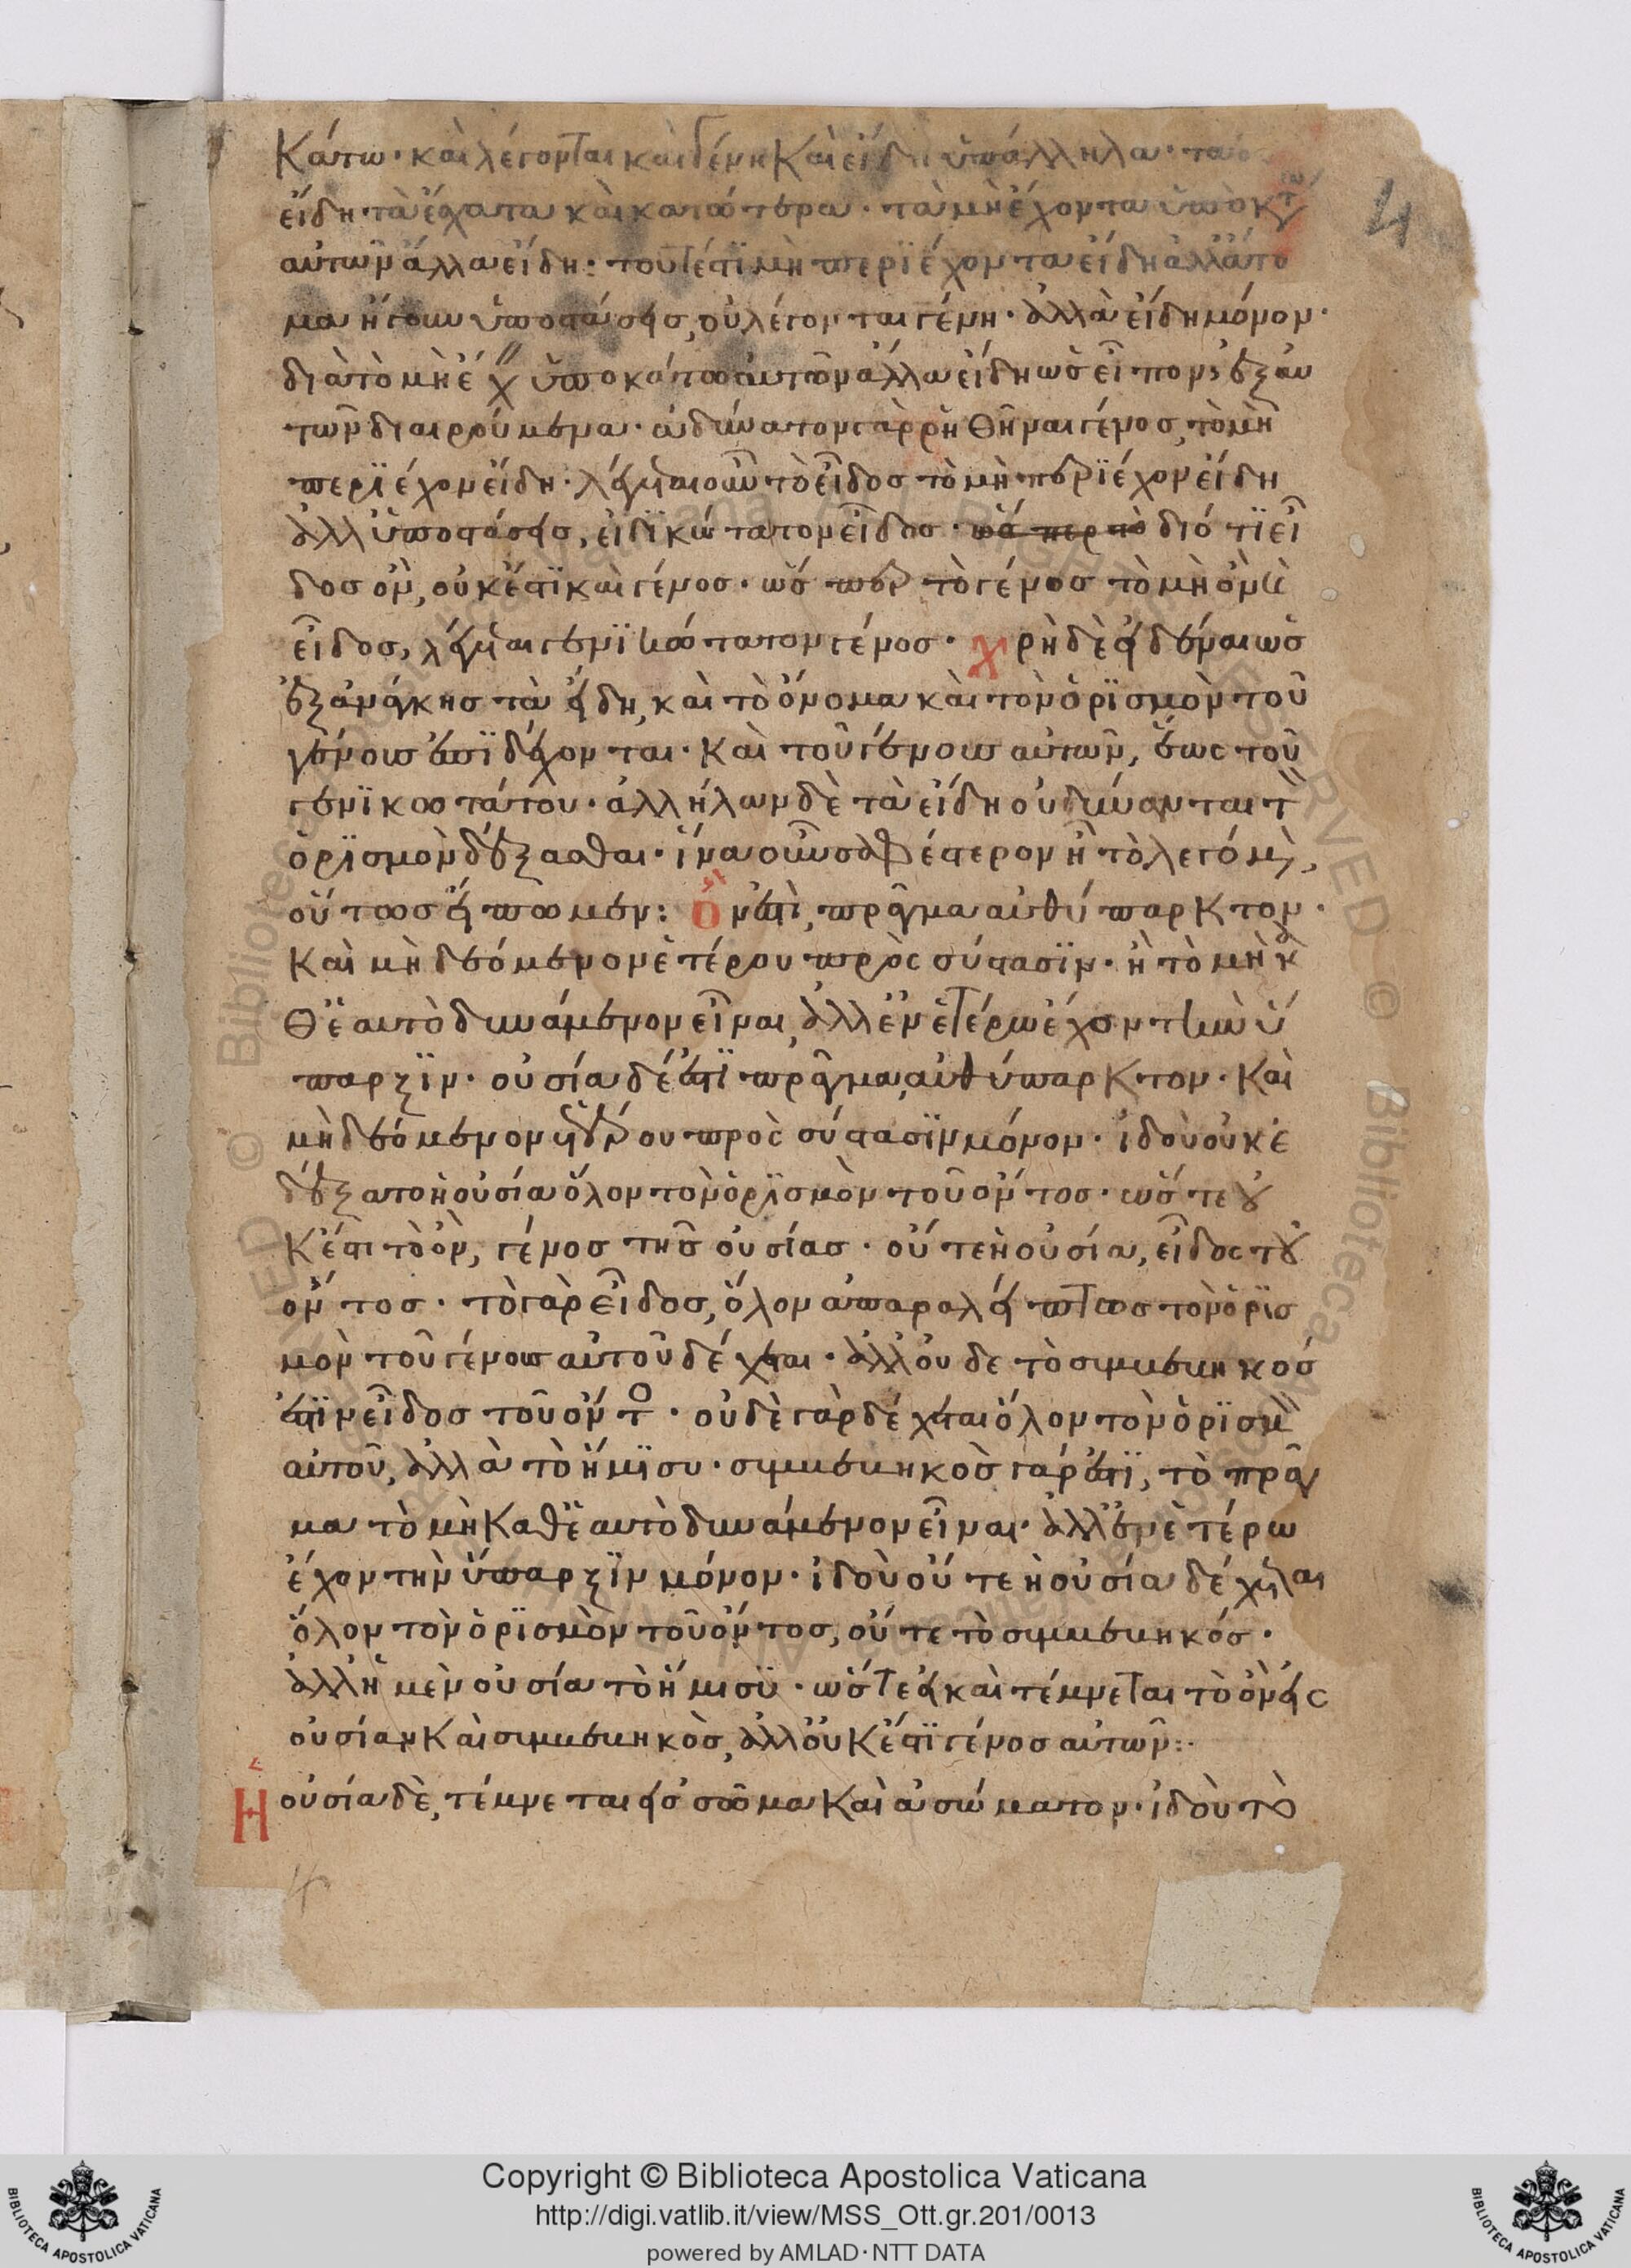 κάτω· καὶ λέγονται καὶ γένη καὶ εἴδη ὑπάλληλα· τὰ
εἴδη τὰ ἔσχατα καὶ κατώτερα· τὰ μὴ ἔχοντα ὑποκτ
αὐτῶν ἄλλα εἴδη: τουτέστι μὴ περιέχοντα εἴδη ἀλλ' ἄτο
μα ἤγουν ὑποστάσεις, οὐ λέγονται γένη· ἀλλὰ εἴδη μόνον·
διὰ τὸ μὴ ἔχ ὑποκάτω αὐτῶν ἄλλα εἴδη ὡς εἶπον, ἐξ αυ
τῶν διαιρούμενα· ἀδύνατον γὰρ ῥηθῆναι γένος, τὸ μὴ
περιέχον εἴδη· λέγεται οὖν τὸ εἶδος τὸ μὴ περιέχον εἴδη
ἀλλ' ὑποστάσεις, εἰδικώτατον εἶδος· διότι εἶ
δος ὂν, οὐκ ἔστι καὶ γένος· ὥσπερ τὸ γένος τὸ μὴ ὂν
εἶδος, λέγεται γενικώτατον γένος· χρὴ δὲ εἰδέναι ὡς
ἐξ ἀνάγκης τὰ εἴδη, καὶ τὸ ὄνομα καὶ τὸν ὁρισμὸν τοῦ
γένους ἐπιδέχονται· καὶ τοῦ γένους αὐτῶν, ἕως τοῦ
γενικωτάτου· ἀλλήλων δὲ τὰ εἴδη οὐ δύνανται τ
ὁρισμὸν δέξασθαι· ἵνα οὖν σαφέστερον ἦ τὸ λεγόμ,
οὕτως εἴπωμεν: Ὄν ἐστι, πρᾶγμα αὐθύπαρκτον·
καὶ μὴ δεόμενον ἑτέρου πρὸς σύστασιν· ἢ τὸ μὴ κ
θ' ἑαυτὸ δυνάμενον εἶναι, ἀλλ' ἐν ἑτέρω ἔχον τὴν ὕ
παρξιν· οὐσία δέ ἐστι πρᾶγμα, αὐθύπαρκτον· καὶ
μὴ δεόμενον ἑτέρου πρὸς σύστασιν μόνον· ἰδοὺ οὐκ ἐ
δέξατο ἡ οὐσία ὅλον τὸν ὁρισμὸν τοῦ ὄντος· ὥστε οὐ
κ ἔστι τὸ ὂν, γένος τῆς οὐσίας· οὔτε ἡ οὐσία, εἶδος τοῦ
ὄντος· τὸ γὰρ εἶδος, ὅλον ἀπαραλείπτως τὸν ὁρισ
μὸν τοῦ γένους αὐτοῦ δέχεται· ἀλλ' οὐδε τὸ συμβεβηκός
ἐστιν εἶδος τοῦ ὄντ· οὐδὲ γὰρ δέχεται ὅλον τὸν ὁρισμ
αὐτοῦ, ἀλλὰ τὸ ἥμισυ· συμβεβηκὸς γάρ ἐστι, τὸ πρᾶγ
μα τὸ μὴ καθ' ἑαυτὸ δυνάμενον εἶναι· ἀλλ' ἐν ἑτέρω
ἔχον τὴν ὕπαρξιν μόνον· ἰδοὺ οὔτε ἡ οὐσία δέχεται
ὅλον τὸν ὁρισμὸν τοῦ ὄντος, οὔτε τὸ συμβεβηκός·
ἀλλ' ἡ μὲν οὐσία τὸ ἥμισυ· ὥστε εἰ καὶ τέμνεται τὸ ὂν εἰς
οὐσίαν καὶ συμβεβηκὸς, ἀλλ' οὐκ ἔστι γένος αὐτῶν:·
Ἡ οὐσία δὲ, τέμνεται εἰς σῶμα καὶ ἀσώματον· ἰδοὺ τὸ
4
Copyright © Biblioteca Apostolica Vaticana
http://digi.vatlib.it/view/MSS_Ott.gr.201/0013
powered by AMLAD·NTT DATA
BIBLIOTECA APOSTOLICA VATICANA
BIBLIOTECA APOSTOLICA VATICANA